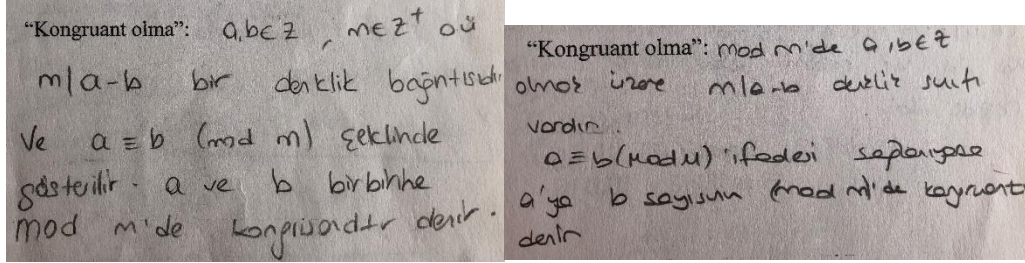 "Kongruant olma": a,b∈Z, m∈Z⁺ oü
m|a-b bir denklik bağıntısıdır
Ve a ≡ b (mod m) şeklinde
gösterilir. a ve b birbirine
mod m'de kongruandır denir.
"Kongruant olma": mod m'de a,b∈Z
olmak üzere m|a-b denklik sınıfı
vardır.
a≡b(mod m) ifadesi sağlanıyorsa
a'ya b sayısının (mod m)'de kongruant
denir